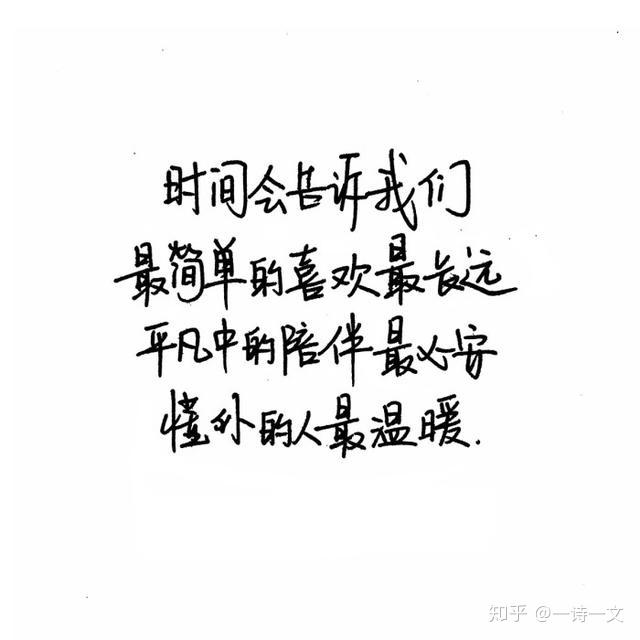 时间会告诉我们
最简单的喜欢最长远
平凡中的陪伴最心安
懂你的人最温暖.
知乎 @一诗一文